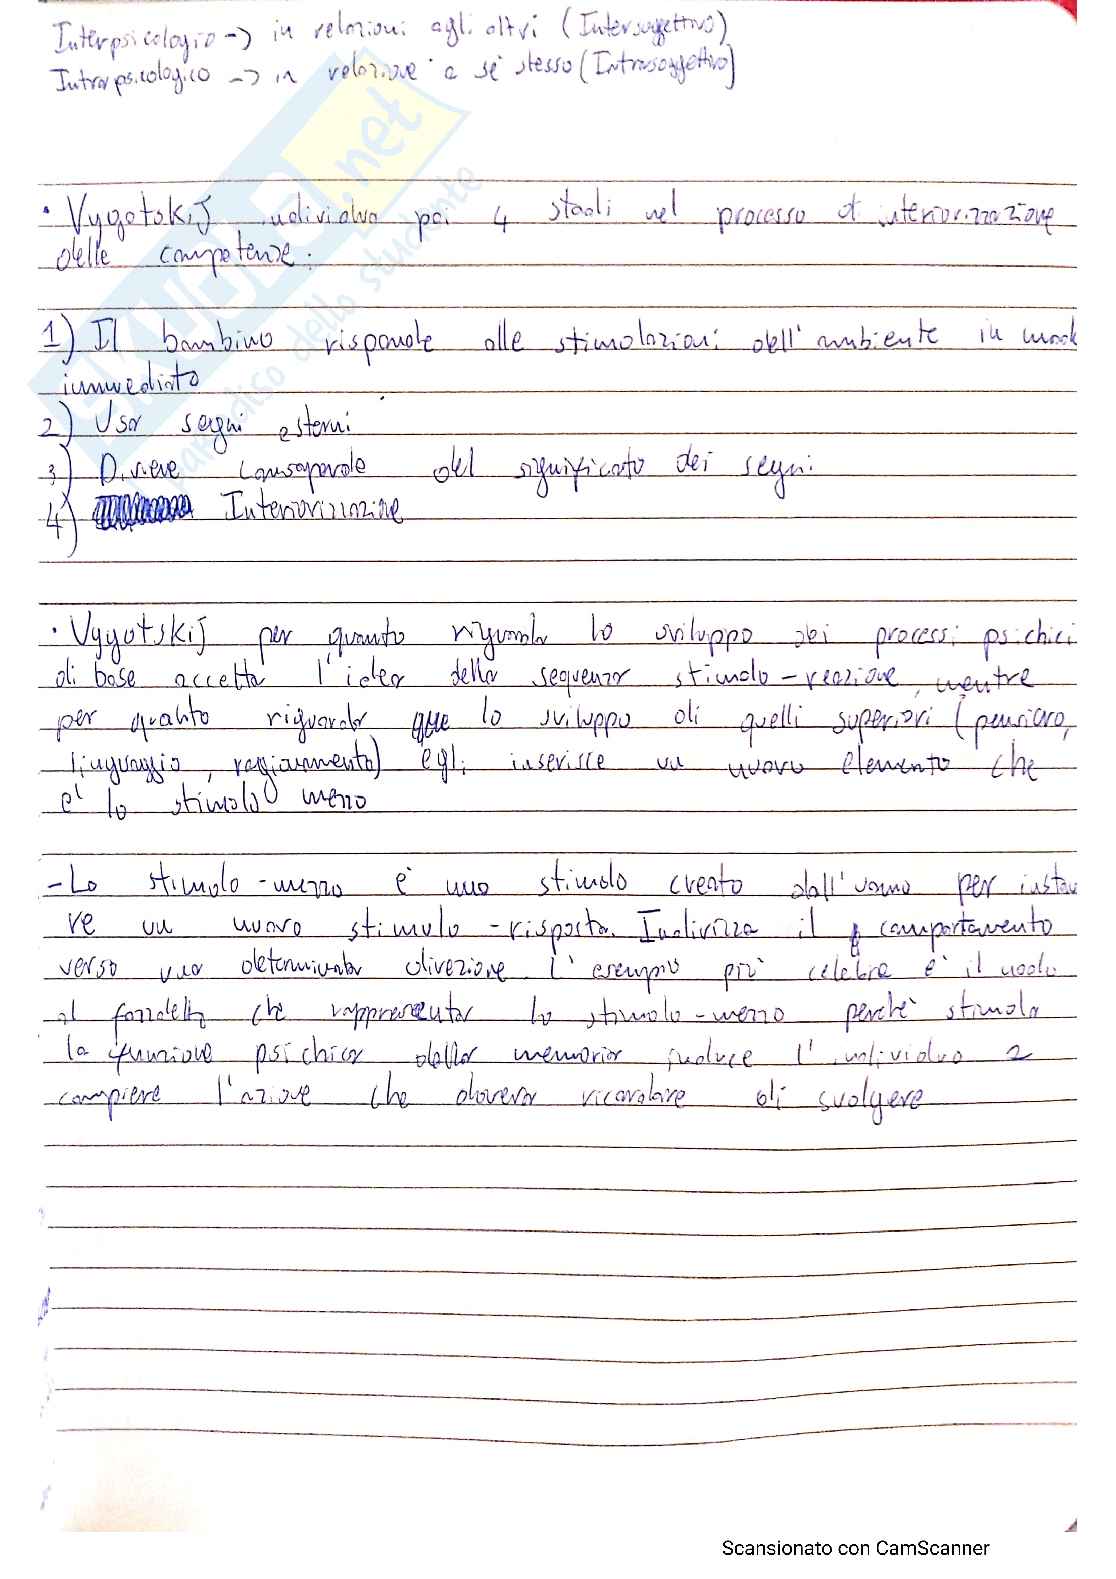 Interpsicologio -> in relazioni agli altri (Intersoggettivo)
Intrapsicologico -> in relazione a sé stesso (Intrasoggettivo)
SKUOLA.net
il paradiso dello studente
• Vygotskij individua poi 4 stadi nel processo di interiorizzazione
delle competenze:
1) Il bambino risponde alle stimolazioni dell'ambiente in modo
immediato
2) Usa segni esterni
3) Diviene consapevole del significato dei segni
4) Interiorizzazione
• Vygotskij per quanto riguarda lo sviluppo dei processi psichici
di base accetta l'idea della sequenza stimolo-reazione, mentre
per quanto riguarda que lo sviluppo di quelli superiori (pensiero,
linguaggio, ragionamento) egli inserisce un nuovo elemento che
e' lo stimolo mezzo
- Lo stimolo-mezzo è uno stimolo creato dall'uomo per instau
re un nuovo stimolo-risposta. Indirizza il comportamento
verso una determinata direzione L'esempio più celebre e' il nodo
al fazzoletto che rappresenta lo stimolo-mezzo perchè stimola
la funzione psichica della memoria induce l'individuo a
compiere l'azione che doveva ricordare di svolgere
Scansionato con CamScanner